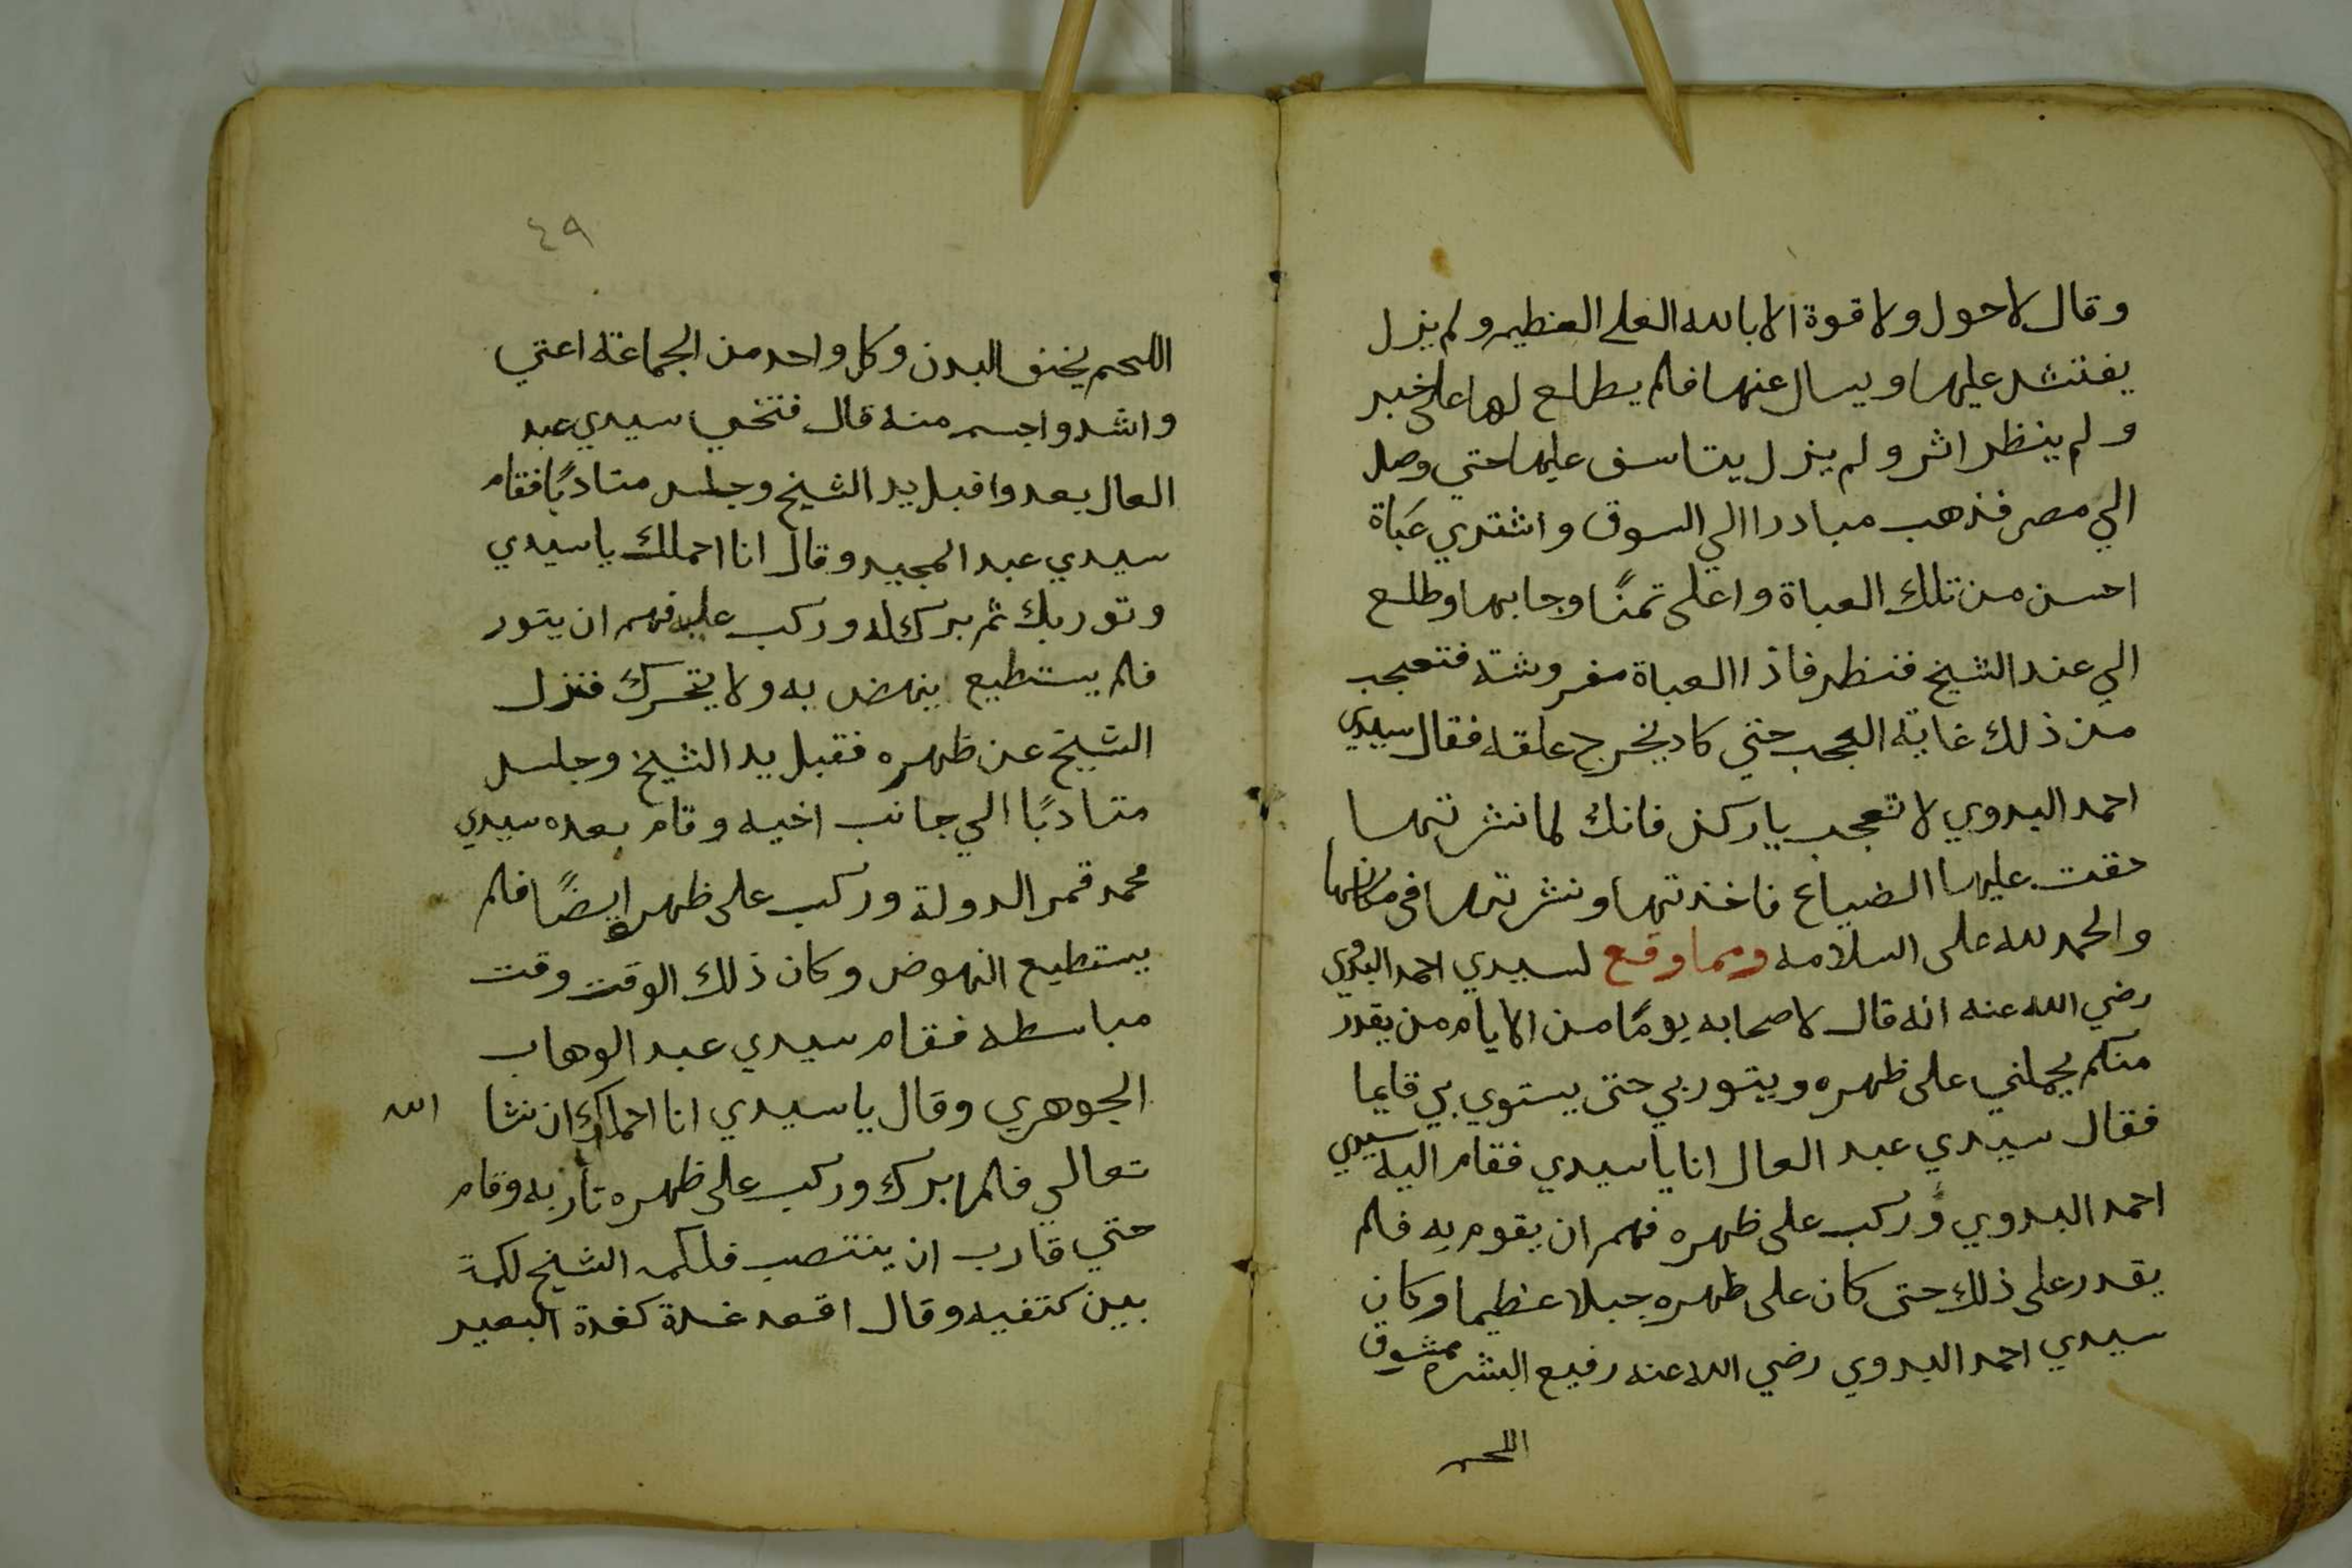 وقال لا حول ولا قوة الا بالله العلي العظيم ولم يزل
يفتش عليها ويسال عنها فلم يطلع لها على خبر
ولم ينظر اثر ولم يزل يتاسف عليها حتي وصل
الي مصر فذهب مبادرا الي السوق واشتري عباة
احسن من تلك العباة واغلى تمنًا وجا بها وطلع
الي عند الشيخ فنظر فاذا العباة مفروشة فتعجب
من ذلك غاية العجب حتي كاد يخرج عقله فقال سيدي
احمد البدوي لا تعجب يا ركن فانك لما نشرتها
خفت عليها الضياع فاخذتها ونشرتها في مكانها
والحمد لله على السلامه ومما وقع لسيدي احمد البدوي
رضي الله عنه انه قال لاصحابه يومًا من الايام من يقدر
منكم يحملني على ظهره ويتور بي حتى يستوي بي قايما
فقال سيدي عبد العال انا يا سيدي فقام اليه سيدي
احمد البدوي وركب على ظهره فهم ان يقوم به فلم
يقدر على ذلك حتى كان على ظهره جبلا عظيما وكان
سيدي احمد البدوي رضي الله عنه رفيع البشره ممشوق
اللحم
٤٩
اللحم نحيف البدن وكل واحد من الجماعة اعتي
واشد واجسم منه قال فتنحي سيدي عبد
العال بعدوا قبل يد الشيخ وجلس متادبًا فقام
سيدي عبد المجيد وقال انا احملك يا سيدي
وتور بك ثم برك له وركب عليه فهم ان يتور
فلم يستطيع ينهض به ولا يتحرك فنزل
الشيخ عن ظهره فقبل يد الشيخ وجلس
متادبًا الي جانب اخيه وقام بعده سيدي
محمد قمر الدولة وركب على ظهره ايضًا فلم
يستطيع النهوض وكان ذلك الوقت وقت
مباسطه فقام سيدي عبد الوهاب
الجوهري وقال يا سيدي انا احملك ان نشا الله
تعالي فلما برك وركب على ظهره تار به وقام
حتي قارب ان ينتصب فلكمه الشيخ لكمة
بين كتفيه وقال اقعد غدة كغدة البعير